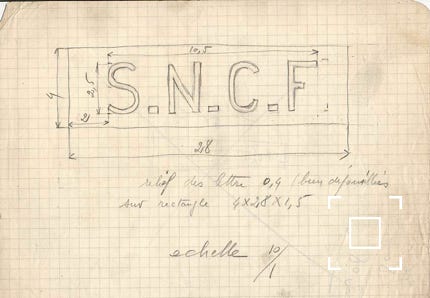 10,5
S.N.C.F
2,5
4
2
28
relief des lettre 0,4 (bien dépouillées
sur rectangle 4X28X1,5
echelle 10/1